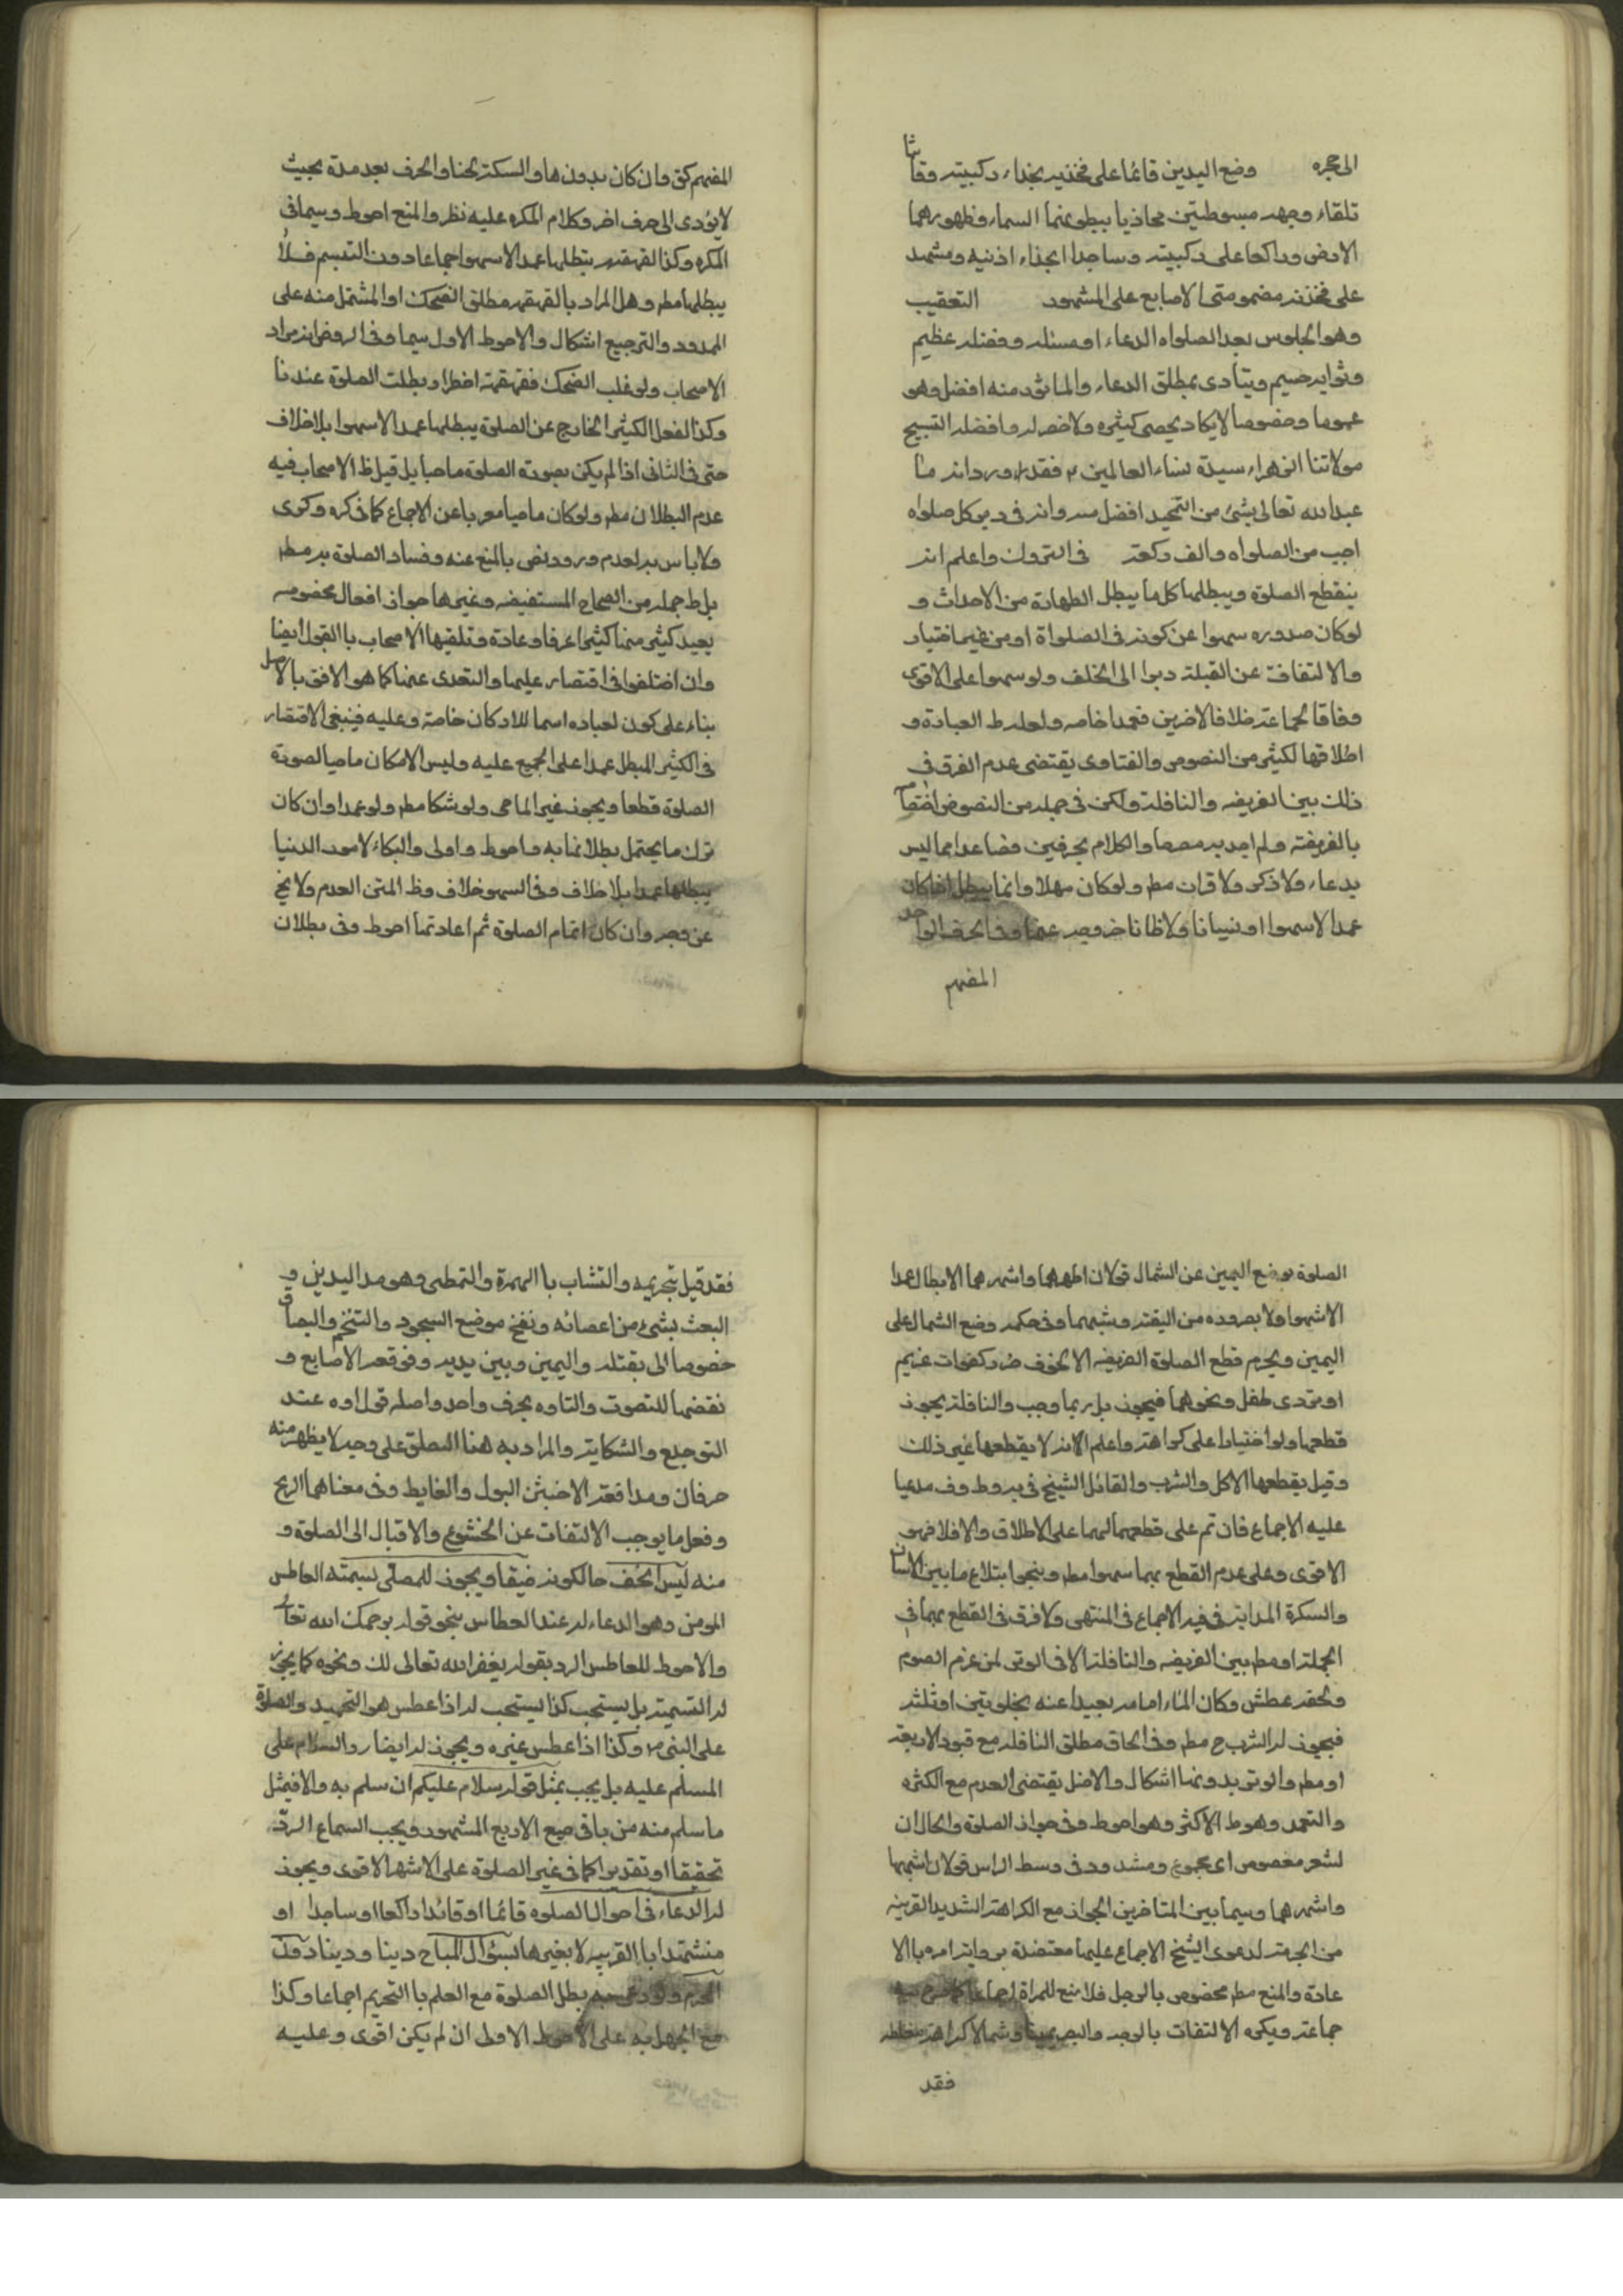 الى حجره وضع اليدين قائما على فخذيه بحذاء ركبتيه وقانتا
تلقاء وجهه مبسوطتين محاذيا ببطونهما السماء وظهورهما
الارض وراكعا على ركبتيه وساجدا بحذاء اذنيه ومتشهد
على فخذيه مضمومتى الاصابع على المشهور التعقيب
وهو الجلوس بعد الصلواه الدعاء او مسئله وفضله عظيم
وثوابه جسيم ويتادى بمطلق الدعاء والماثور منه افضل وهو
عموما وخصوصا لايكاد يحصى كثره ولاحصر له وافضله التسبيح
مولاتنا الزهراء سيدة نساء العالمين فقد ورد انه ما
عبد الله تعالى بشئ من التحميد افضل منه وانه فى دبر كل صلواه
احب من الصلواه والف ركعة فى التروك واعلم انه
ينقطع الصلوة ويبطلها كل ما يبطل الطهارة من الاحداث و
لو كان صدوره سهوا عن كونه فى الصلواة او من غير اختيار
والالتفات عن القبلة دبرا الى الخلف ولو سهوا على الاقوى
وفاقا لجماعة خلافا لاخرين فعمدا خاصه ولعله ط العبادة و
اطلاقها لكثير من النصوص والفتاوى يقتضى عدم الفرق فى
ذلك بين الفريضه والنافلة ولكن فى جمله من النصوص اختصاصه
بالفريضة ولم اجد به مصرحا والكلام بحرفين فصاعدا مما ليس
بدعاء ولا ذكر ولا قران مطم ولو كان مهملا وانما يبطل اذا كان
عمدا لا سهوا او نسيانا ولا ظانا خروجه عنها وفى الحرف الواحد
المفهم
المفهم كق وان كان بدون هاء السكتة لحنا والحرف بعد مدة بحيث
لايؤدى الى حرف اخر وكلام المكره عليه نظر والمنع احوط وسيما فى
المكره وكذا القهقهه يبطلها عمدا لا سهوا اجماعا دون التبسم فلا
يبطلها مطم وهل المراد بالقهقهه مطلق الضحك او المشتمل منه على
المد ود والترجيع اشكال والاحوط الاول سيما وفى الروض انه مراد
الاصحاب ولو غلب الضحك فقهقهته اضطرارا وبطلت الصلوة عندنا
وكذا الفعل الكثير الخارج عن الصلوة يبطلها عمدا لا سهوا بلا خلاف
حتى فى الثانى اذا لم يكن بصورة الصلوة ماحيا بل قيل ظ الاصحاب فيه
عدم البطلان مطم ولو كان ماحيا معربا عن الاجماع كما فى كره وكرى
ولا باس به لعدم ورود نص بالمنع عنه وفساد الصلوة به مطم
بل ط جمله من الصحاح المستفيضه وغيرها جواز افعال مخصوصه
يعيد كثير منها كثيرا عرفا وعادة وتلقيها الاصحاب با القبول ايضا
وان اختلفوا فى اقتصار عليها والتعدى عنها كما هو الافق بالاصل
بناء على كون لعباده اسما للاركان خاصة وعليه فينبغى الاقتصار
فى الكثير المبطل عمدا على المجمع عليه وليس الامكان ماحيا لصورة
الصلوة قطعا ويجوز غير الماحى ولو شكا مطم ولو عمدا وان كان
ترك ما يحتمل بطلانها به واحوط واولى والبكاء لامور الدنيا
يبطلها عمدا بلا خلاف وفى السهو خلاف وظ المتن العدم ولا يخ
عن وجه وان كان اتمام الصلوة ثم اعادتها احوط وفى بطلان
الصلوة بوضع اليمين عن الشمال قولان اظهرهما واشهرهما الابطال عمدا
لا سهوا ولا بصوره من التقيه وشبهها وفى حكمه وضع الشمال على
اليمين ويحرم قطع الصلوة الفريضه الا لخوف ضرر كفوات غريم
او تردى طفل ونحوهما فيجوز بل ربما وجب والنافلة يجوز
قطعها ولو اختيارا على كراهة واعلم الانه لا يقطعها غير ذلك
وقيل يقطعها الاكل والشرب والقائل الشيخ فى يه وط وف مدعيا
عليه الاجماع فان تم على قطعهما لهما على الاطلاق والا فلا فهو
الاقوى وعلى عدم القطع بهما سهوا مطم وبنحو ابتلاع ما بين الاسنان
والسكرة المذابة فى فيه الاجماع فى المنتهى ولا فرق فى القطع بهما فى
الجملة او مطم بين الفريضه والنافلة الا فى الوتر لمن عزم الصوم
ولحقه عطش وكان الماء امامه بعيدا عنه بخلوتين او ثلثه
فيجوز له الشرب ح مطم وفى الحاق مطلق النافله مع قيود الاربعة
او مطم والوتر بدونها اشكال والاصل يقتضى العدم مع الكثره
والتعمد وهو ط الاكثر وهو احوط وفى جواز الصلوة والحال ان
لشعر معصوص اى مجموع ومشدود فى وسط الراس قولان اشبهها
واشهرهما وسيما بين المتاخرين الجواز مع الكراهة الشديد القريبه
من الحرمة لدعوى الشيخ الاجماع عليها معتضدة بروايه امره بالا
عادة والمنع مطم مخصوص بالرجل فلا منع للمراة اجماعا كما صرح به
جماعة ويكره الالتفات بالوجه والبصر يمينا وشمالا كراهة مغلظه
فقد
فقد قيل بتحريمه والتثاب با الهمزة والتمطى وهو مد اليدين و
العبث بشئ من اعضائه ونفخ موضع السجود والتنخم والبصاق
خصوصا الى بقبلة واليمين وبين يديه وفرقعه الاصابع و
نقضها للتصوت والتاوه بحرف واحد واصله قول اوه عند
التوجع والشكاية والمراد به هنا النطق على وجه لا يظهر منه
حرفان ومدافعة الاخبثن البول والغايط وفى معناهما الريح
وفعل ما يوجب الالتفات عن الخشوع والاقبال الى الصلوة و
منه لبس الخف حالكونه ضيقا ويجوز للمصلى تسمته العاطس
المومن وهو الدعاء له عند العطاس بنحو قوله يرحمك الله تعالى
والاحوط للعاطس الرد بقوله يغفر الله تعالى لك ونحوه كما يجوز
له التسميته بل يستحب كذا يستحب له اذا عطس هو التحميد والصلوة
على النبى ص وكذا اذا عطس غيره ويجوز له ايضا رد السلام على
المسلم عليه بل يجب بمثل قوله سلام عليكم ان سلم به والا فيمثل
ما سلم منه من باقى صيع الاربع المشهور ويجب السماع الرد
تحقيقا او تقديرا كما فى غير الصلوة على الاشهر الاقوى ويجوز
له الدعاء فى احوال الصلوه قائما او قائدا راكعا او ساجدا او
متشهدا با القربيه لا بغيرها لسؤال المباح دينا ودينا دون
المحرم ولو دعى به بطل الصلوة مع العلم با التحريم اجماعا وكذا
مع الجهل به على الاحوط الاولى ان لم يكن اقوى وعليه